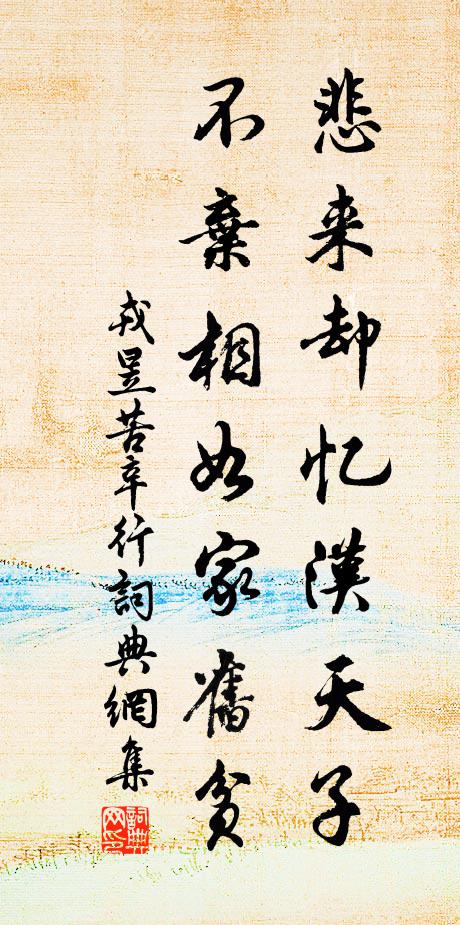 悲来却忆漢天子
不棄相如家舊貧
戎昱苦辛行詞典網集
詞典网印